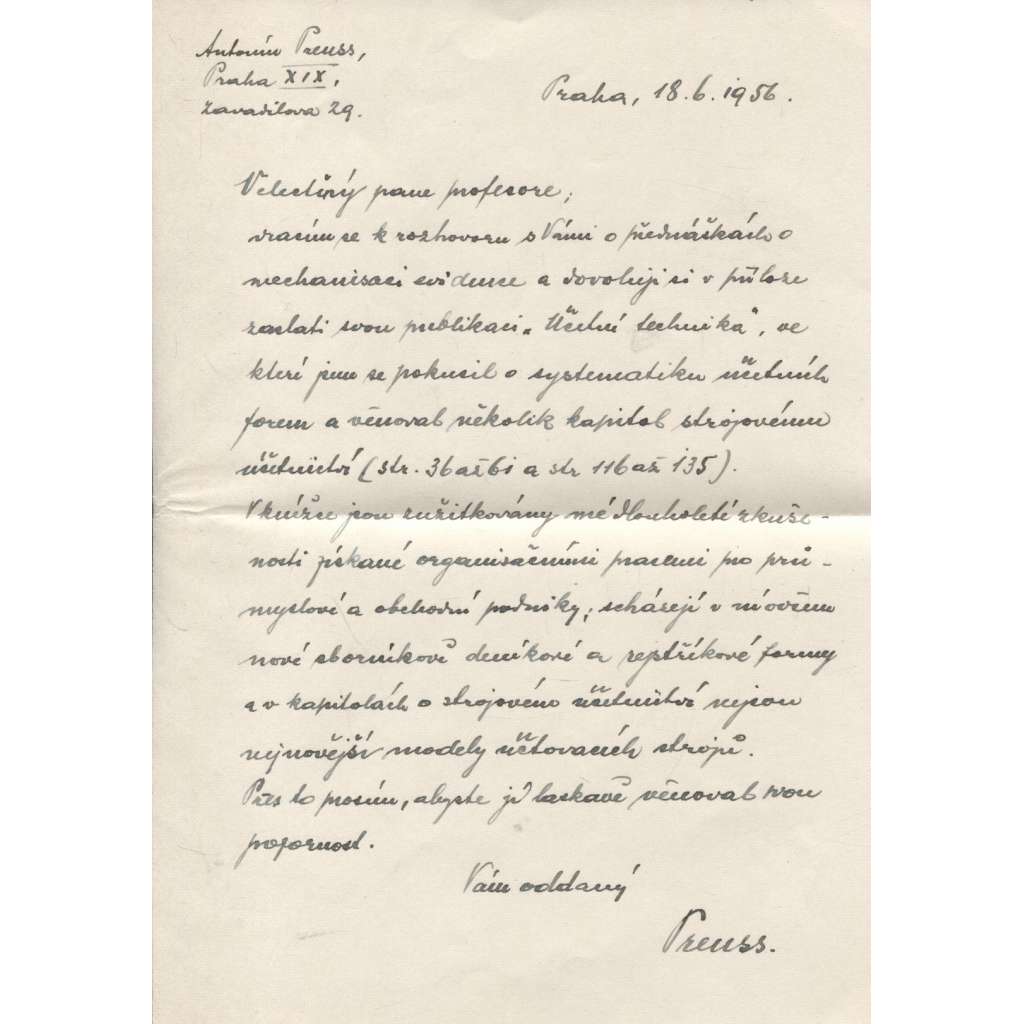 Antonín Preuss,
Praha XIX,
Zavadilova 29.
Praha, 18.6.1956.
Velectěný pane profesore,
vracím se k rozhovoru s Vámi o přednáškách o
mechanisaci evidence a dovoluji si v příloze
zaslati svou publikaci „Účetní technika", ve
které jsem se pokusil o systematiku účetních
forem a věnoval několik kapitol strojovému
účetnictví (str. 36 až 61 a str 116 až 135).
V knížce jsou zužitkovány mé dlouholeté zkuše-
nosti získané organisačními pracemi pro prů-
myslové a obchodní podniky; scházejí v ní ovšem
nové sborníkové deníkové a rejstříkové formy
a v kapitolách o strojovém účetnictví nejsou
nejnovější modely účtovacích strojů.
Přes to prosím, abyste jí laskavě věnoval svou
pozornost.
Vám oddaný
Preuss.